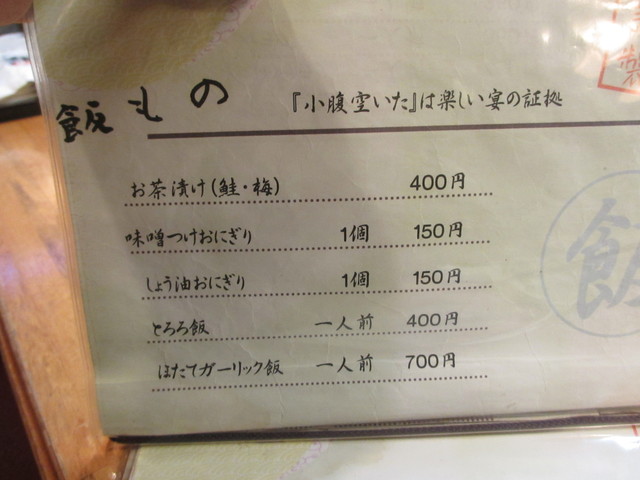 飯もの
『小腹空いた』は楽しい宴の証拠
お茶漬け(鮭・梅) 400円
味噌つけおにぎり 1個 150円
しょう油おにぎり 1個 150円
とろろ飯 一人前 400円
ほたてガーリック飯 一人前 700円
飯